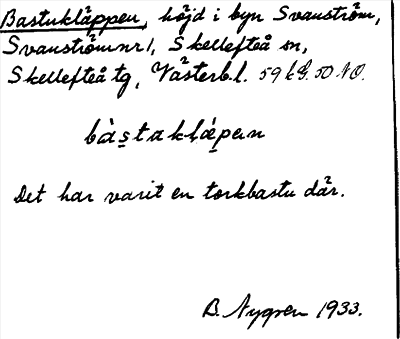 Bastukläppen, höjd i byn Svanström,
Svanström nr 1, Skellefteå sn,
Skellefteå tg, Västerb. l. 59 k G. 50 NO.
bàstaklǽpen
Det har varit en torkbastu där.
B. Nygren 1933.